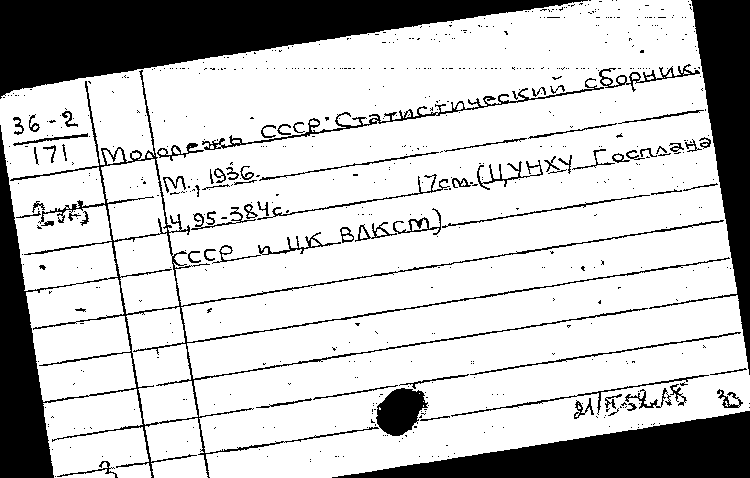 36-2
171
Молодежь СССР: Статистический сборник.
М., 1936.
14,95-384с. 17см. (ЦУНХУ Госплана
СССР и ЦК ВЛКСМ).
2 экз
3